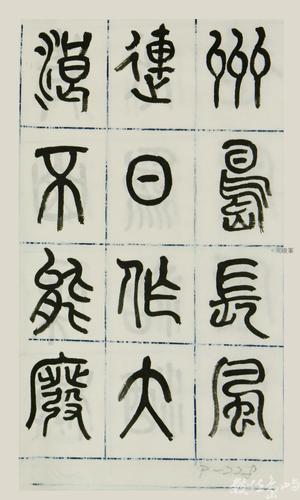 州島長風
連日作大
浪不能廢